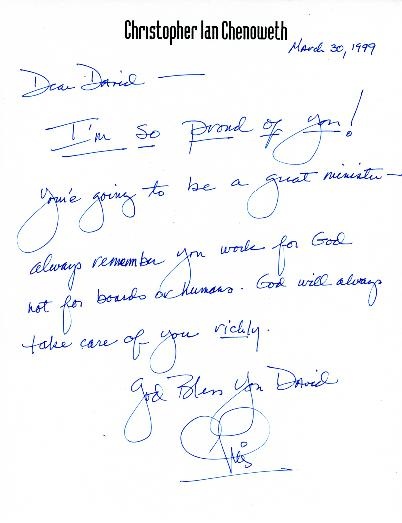 Christopher Ian Chenoweth
March 30, 1999
Dear David —
I'm so proud of you!
You're going to be a great minister —
always remember you work for God
not for boards or humans. God will always
take care of you richly.
God Bless You David
Chris